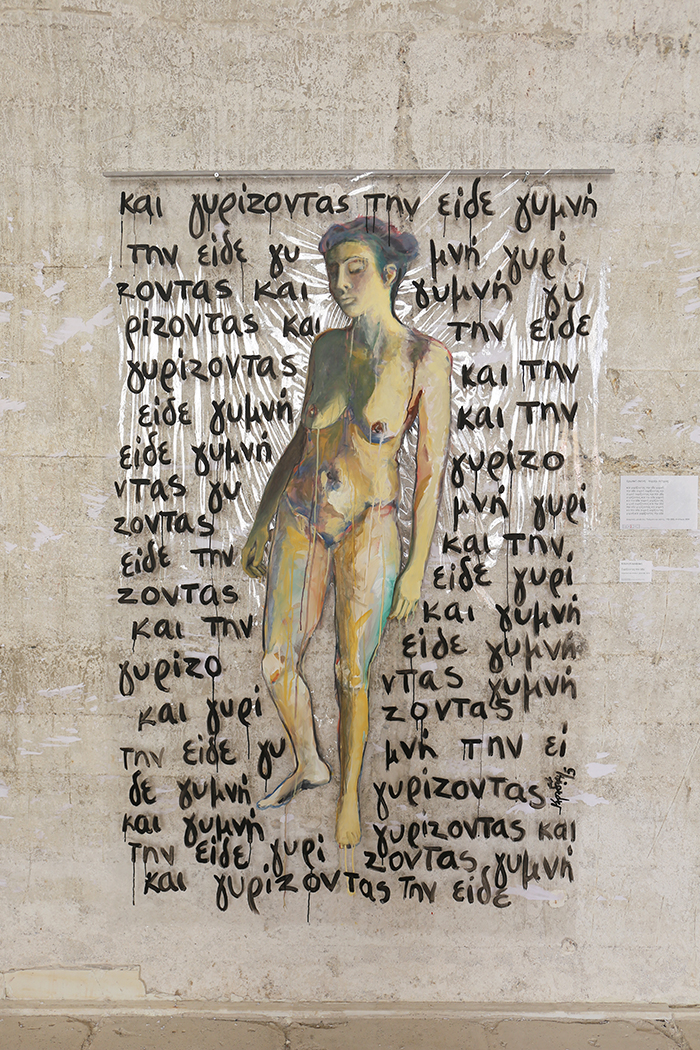 και γυρίζοντας την είδε γυμνή
την είδε γυ μνή γυρί
ζοντας και γυμνή γυ
ρίζοντας και την είδε
γυρίζοντας και την
είδε γυμνή και την
είδε γυμνή γυρίζο
ντας γυ μνή γυρί
ζοντας και την
είδε την είδε γυρί
ζοντας και γυμνή
και την είδε γυμνή
γυρίζο ντας γυμνή
και γυρί ζοντας
την είδε γυ μνή την εί
δε γυμνή γυρίζοντας
και γυμνή γυρίζοντας και
την είδε γυρί ζοντας γυμνή
και γυρίζοντας την είδε